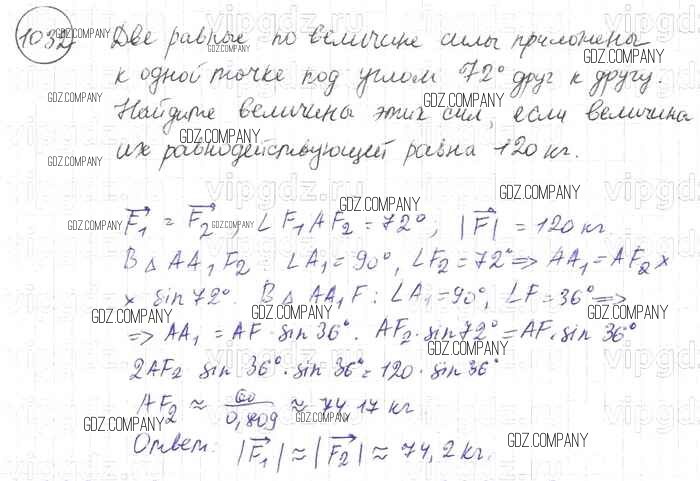 1032 Две равные по величине силы приложены
к одной точке под углом 72° друг к другу.
Найдите величины этих сил, если величина
их равнодействующей равна 120 кг.
F₁ = F₂, ∠F₁AF₂ = 72°; |F| = 120 кг.
В △ AA₁F₂: ∠A₁ = 90°, ∠F₂ = 72° ⇒ AA₁ = AF₂ ×
× sin 72°. В △ AA₁F: ∠A₁ = 90°, ∠F = 36° ⇒
⇒ AA₁ = AF · sin 36°. AF₂ · sin 72° = AF · sin 36°
2AF₂ sin 36° · sin 36° = 120 · sin 36°
AF₂ ≈ 60/0,809 ≈ 74,17 кг
Ответ: |F₁| ≈ |F₂| ≈ 74,2 кг.
GDZ.COMPANY
vipgdz.ru